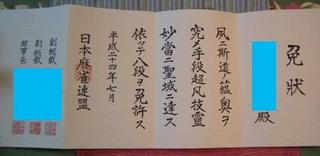 免状
殿
夙ニ斯道ノ蘊奥ヲ
究メ手段超凡技霊
妙當ニ聖域ニ達ス
依ッテ八段ヲ免許ス
平成二十四年七月
日本麻雀連盟
副総裁
副総裁
理事長